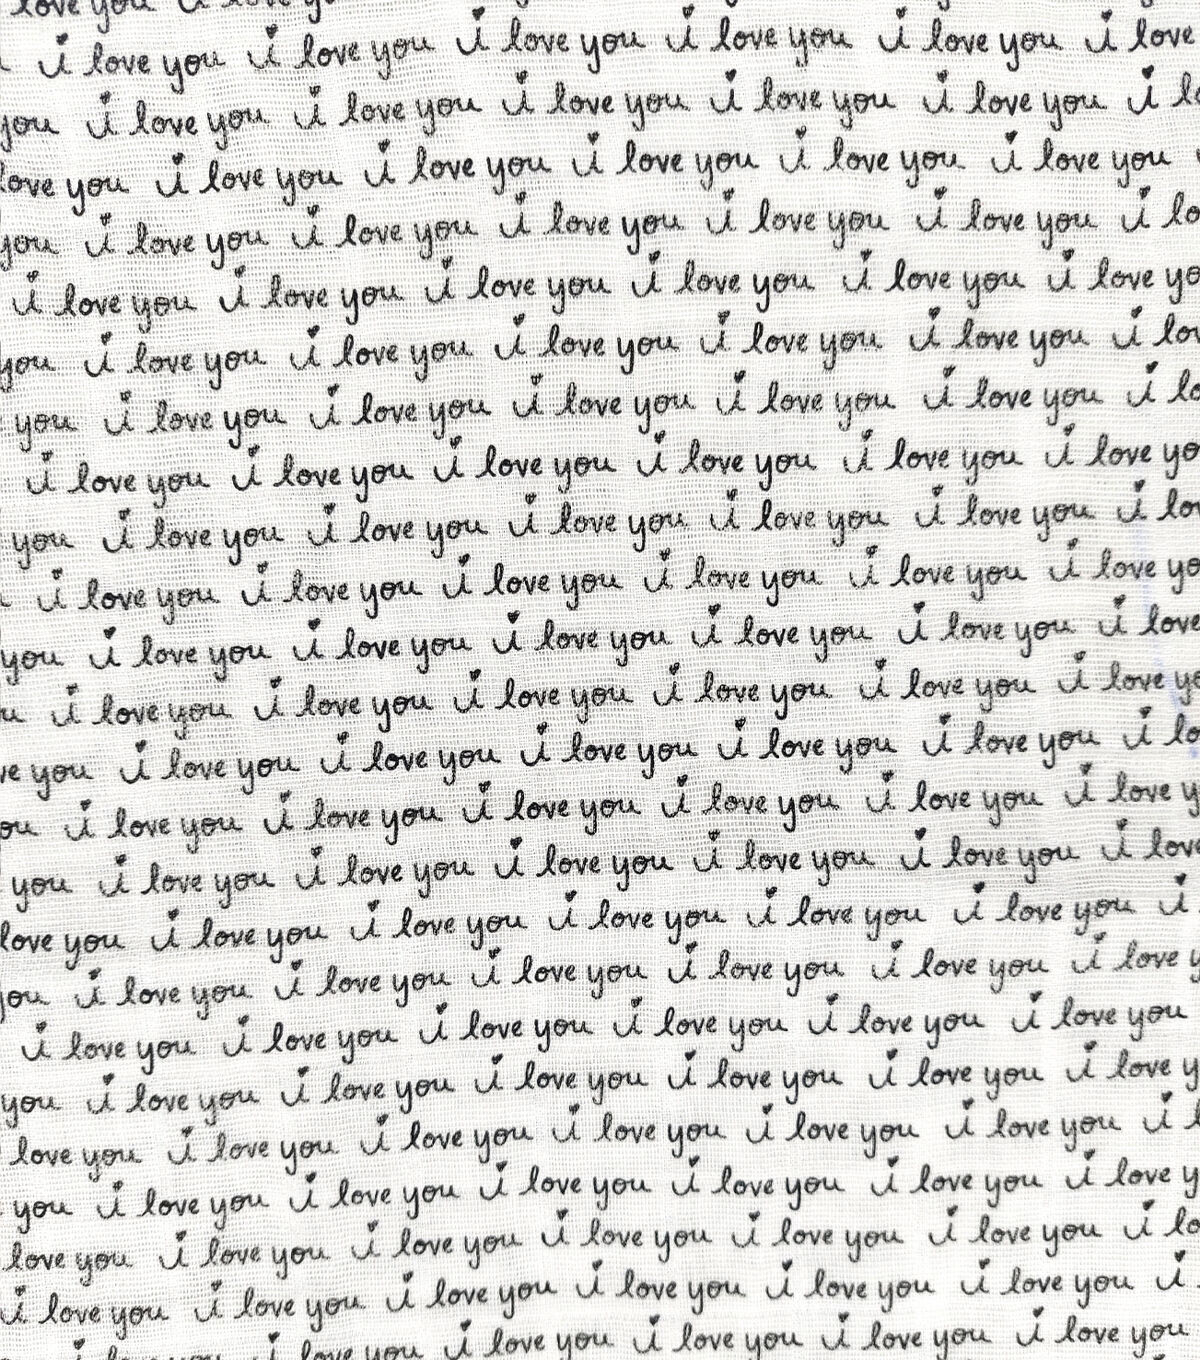 love you i love
i love you i love you i love you i love you i love you i love
you i love you i love you i love you i love you i love you i
love you i love you i love you i love you i love you i love you
you i love you i love you i love you i love you i love you i lo
i love you i love you i love you i love you i love you i love yo
you i love you i love you i love you i love you i love you i lov
you i love you i love you i love you i love you i love you i lo
i love you i love you i love you i love you i love you i love yo
you i love you i love you i love you i love you i love you i lov
i love you i love you i love you i love you i love you i love yo
you i love you i love you i love you i love you i love you i love
u i love you i love you i love you i love you i love you i love yo
ve you i love you i love you i love you i love you i love you i lo
ou i love you i love you i love you i love you i love you i love y
you i love you i love you i love you i love you i love you i love
love you i love you i love you i love you i love you i love you i
you i love you i love you i love you i love you i love you i love y
i love you i love you i love you i love you i love you i love you
you i love you i love you i love you i love you i love you i love y
love you i love you i love you i love you i love you i love you i l
you i love you i love you i love you i love you i love you i love y
love you i love you i love you i love you i love you i love you i lo
i love you i love you i love you i love you i love you i love you i
i love you i love you i love you i love you i love you i love you